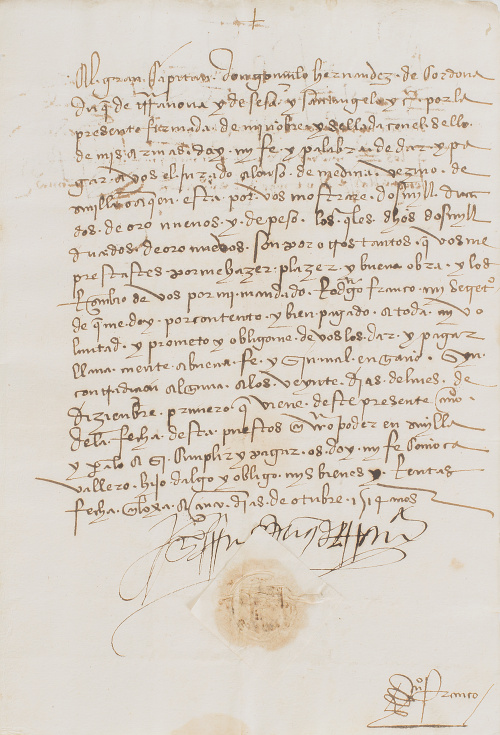 El gran Capitan don gonçalo hernandez de Cordova
duq de trranova y de sesa y santangelo y por la
presente firmada de mi nobre y sellada con el sello
de mis armas doy mi fe y palabra de dar y pa
gar a vos el jurado alonso de medina vezino de
sevilla o a qen esta por vos mostrare dos mill duca
dos de oro nuevos y de peso los qles dhos dos mill
ducados de oro nuevos son por otros tantos q vos me
prestastes por me hazer plazer y buena obra y los
Recibio de vos por mi mandado Rodgo franco mi
de q me doy por contento y bien pagado a toda mi vo
luntad y prometo y obligome de vos los dar y pagar
llana mente a buena fe y sin mal engaño syn
contradicion alguna a los veynte dias del mes de
diziembre primero q viene deste presente año
de la fecha desta puestos en vro poder en sevilla
y pa lo asi cunplir y pagar os doy mi fe como ca
vallero hijo dalgo y obligo mis bienes y Rentas
fecha en loxa a dias de otubre 1514 años
franco